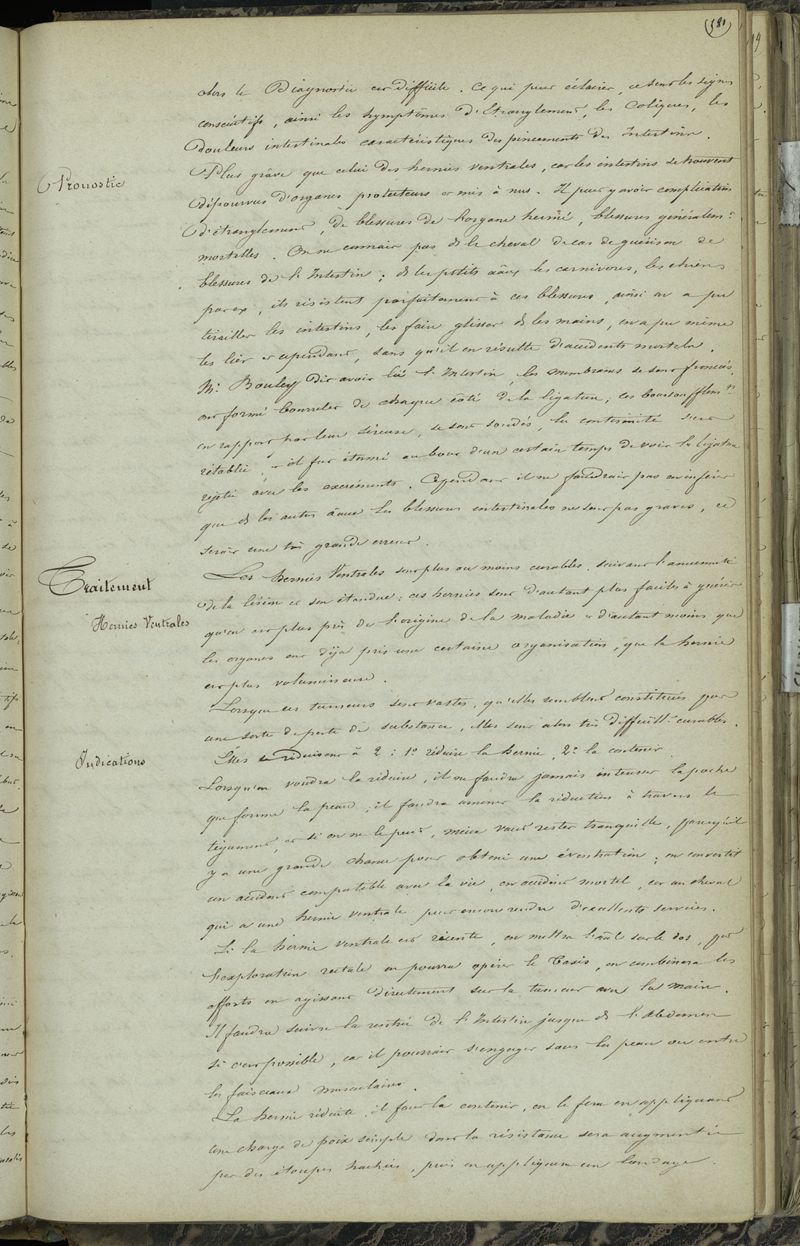 581
alors le Diagnostic est difficile. Ce qui peut éclairer, ce sont les signes
consécutifs, ainsi les symptômes d'Etranglement, les Coliques, les
Douleurs intestinales caractéristiques des pincements de l'Intestin.
Pronostic
Plus grave que celui des hernies ventrales, car les intestins se trouvent
dépourvus d'organes protecteurs et mis à nus. Il peut y avoir complication
d'étranglement, de blessures de l'organe hernié, blessures généralem.t
mortelles. On ne connait pas ds le cheval de cas de guérison de
blessures de l'Intestin ; ds les petits aãux les carnivores, les chiens
par ex, ils résistent parfaitement à ces blessures, ainsi on a pu
tirailler les intestins, les faire glisser ds les mains, on a pu même
les lier et cependant, sans qu'il en résulte d'accidents mortels.
Mr. Bouley dit avoir lié l'Intestin, les membranes se sont froncés,
ont formé bourrelet de chaque côté de la ligature, ces boursoufflem.ts
en rapport par leur séreuse, se sont soudés, la continuité s'est
rétablie, et il fut étonné au bout d'un certain temps de voir la ligature
rejetée avec les excréments. Cependant il ne faudrait pas en inférer
que ds les autres aãux les blessures intestinales ne sont pas graves, ce
serait une très grande erreur.
Traitement
Hernies Ventrales
Les hernies Ventrales sont plus ou moins curables suivant l'ancienneté
de la lésion et son étendue : ces hernies sont d'autant plus faciles à guérir
qu'on est plus près de l'origine de la maladie et d'autant moins que
les organes ont déja pris une certaine organisation, que la hernie
est plus volumineuse.
Lorsque ces tumeurs sont vastes, qu'elles semblent constituées par
une sorte de perte de substance, elles sont alors très difficill.t curables.
Indications
Elles se réduisent à 2 : 1º réduire la hernie, 2º la contenir.
Lorsqu'on voudra la réduire, il ne faudra jamais inciser la poche
que forme la peau, il faudra amener la réduction à travers le
tégument, et si on ne le peut, mieux vaut rester tranquille, parcequ'il
y a une grande chance pour obtenir une éventration ; on convertit
un accident compatible avec la vie, en accident mortel, car un cheval
qui a une hernie ventrale peut encore rendre d'excellents services.
Si la hernie ventrale est récente, on mettra l'aãl sur le dos, par
l'exploration rectale on pourra opérer le Taxis, on combinera les
efforts en agissant directement sur la tumeur avec la main.
Il faudra suivre la rentrée de l'Intestin jusque ds l'Abdomen
si c'est possible, car il pourrait s'engager sous la peau ou entre
les faisceaux musculaires.
La hernie réduite, il faut la contenir, on le fera en appliquant
une charge de poix simple dont la résistance sera augmentée
par des étoupes hachées, puis on appliquera un bandage.